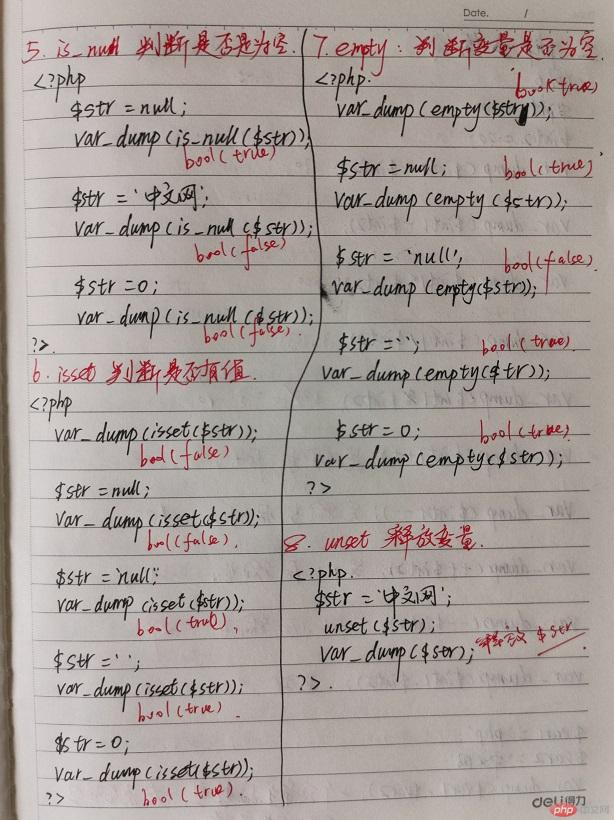 Date. /
5. is_null 判断是否是为空.
<?php
$str = null;
var_dump(is_null($str));
bool(true)
$str = '中文网';
var_dump(is_null($str));
bool(false)
$str = 0;
var_dump(is_null($str));
bool(false).
?>
6. isset 判断是否有值.
<?php
var_dump(isset($str));
bool(false)
$str = null;
var_dump(isset($str));
bool(false).
$str = 'null';
var_dump(isset($str));
bool(true).
$str = '';
var_dump(isset($str));
bool(true).
$str = 0;
var_dump(isset($str));
?> bool(true).
7. empty: 判断变量是否为空.
<?php.
bool(true)
var_dump(empty($str));
$str = null; bool(true)
var_dump(empty($str));
$str = 'null'; bool(false).
var_dump(empty($str));
$str = ''; bool(true).
var_dump(empty($tr));
$str = 0; bool(true).
var_dump(empty($str));
?>
8. unset 释放变量.
<?php.
$str = '中文网';
unset($str);
var_dump($str); 释放 $str
?>.
deli得力
php中文网